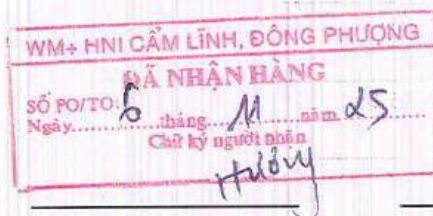 WM+ HNI CẨM LĨNH, ĐÔNG PHƯỢNG
ĐÃ NHẬN HÀNG
SỐ PO/TO:
Ngày 6 tháng 11 năm 25
Chữ ký người nhận
Hường